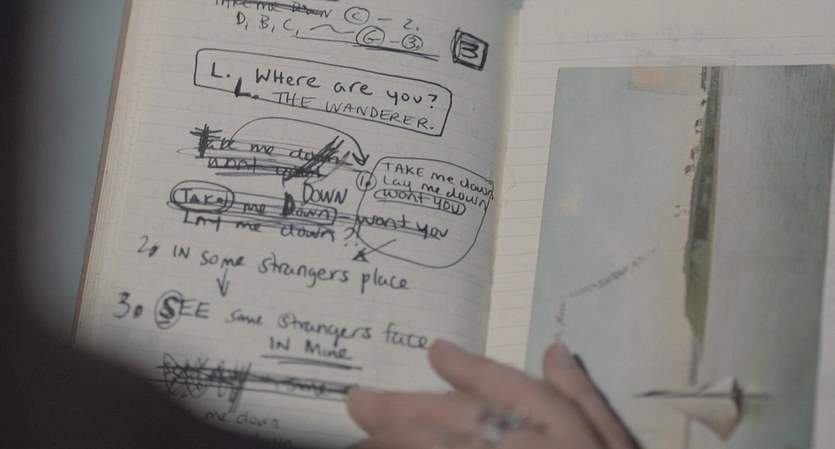 TAKE me DOWN Ⓒ - 2.
D, B, C, Ⓖ - ③.
B
L. WHere are you?
L. THE WANDERER.
Take me down
wont you
TAKE me down
1. Lay me down
wont you
DOWN
TAKE me Down wont you
Lay me down?
2. IN some strangers place
3. SEE some strangers face
IN Mine
me down